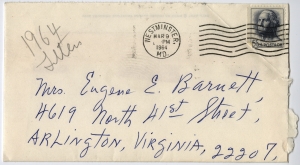 1964
Letters
WESTMINSTER
MAR 9
PM
1964
MD.
Mrs. Eugene E. Barnett
4619 North 41st Street,
ARLINGTON, VIRGINIA, 22207,